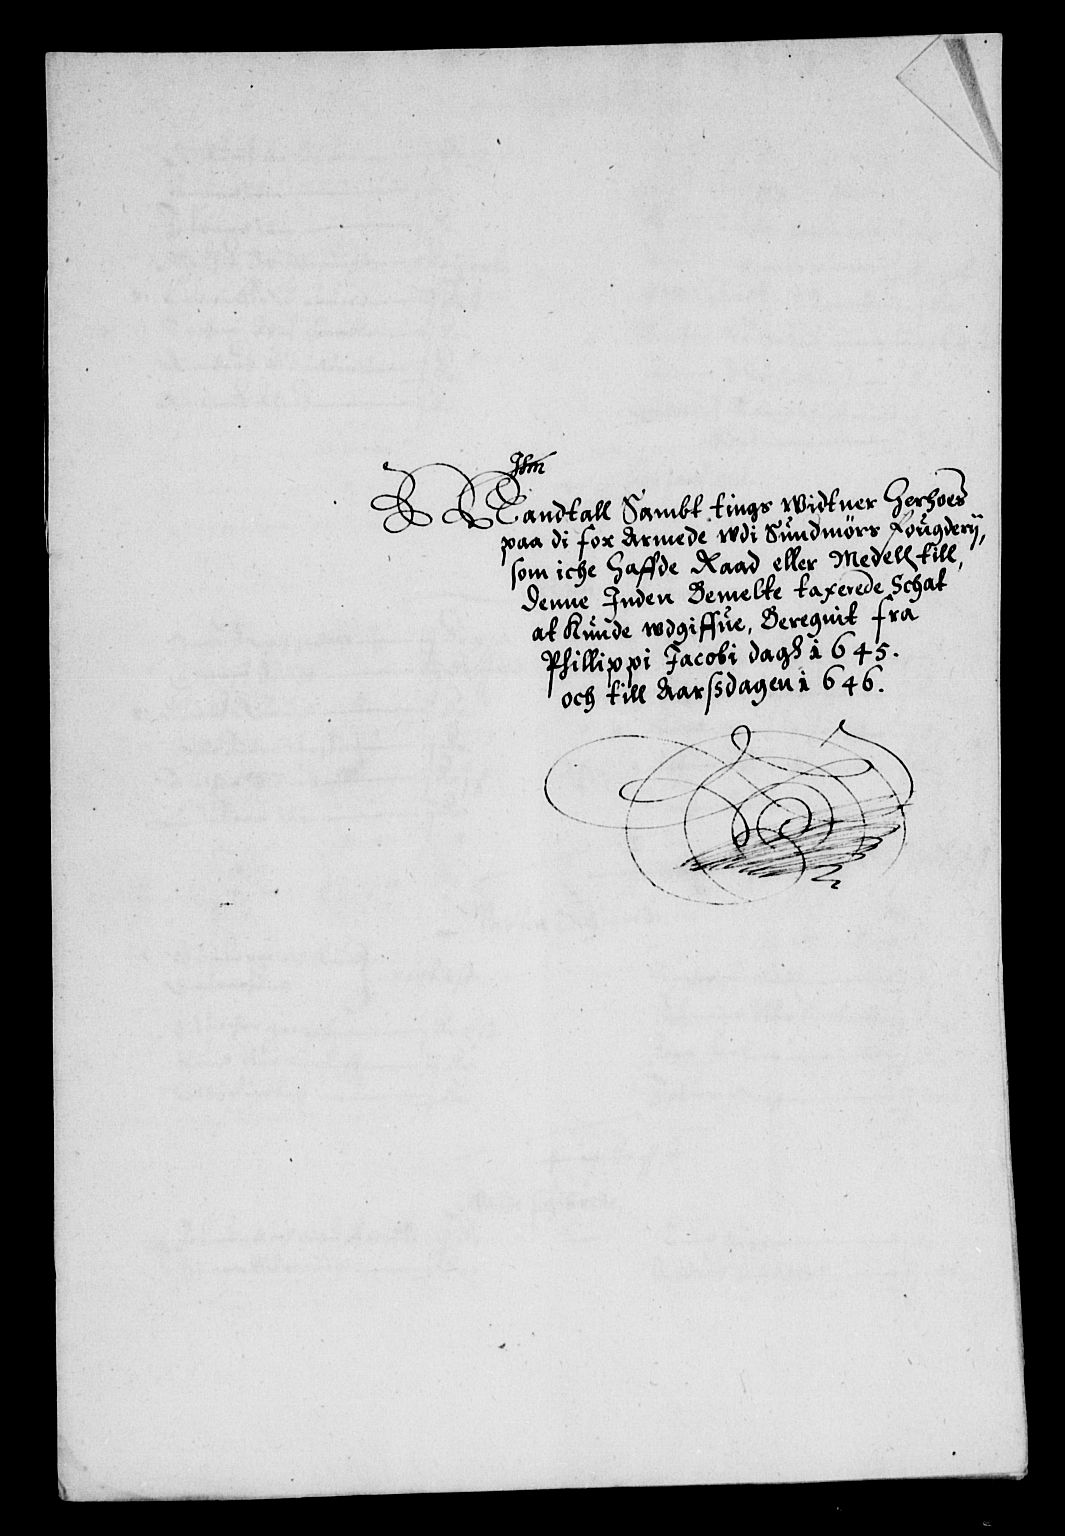 Itm
Mandtall Sambt tings widtner herhoes
paa di for Armede wdi Sundmörs fougderij,
som iche haffde Raad eller Medell till,
denne Inden Bemelte taxerede Schat
at kunde wdgiffue, Beregnit fra
Phillippi Jacobi dagh 1645.
och till Aarssdagen 1646.